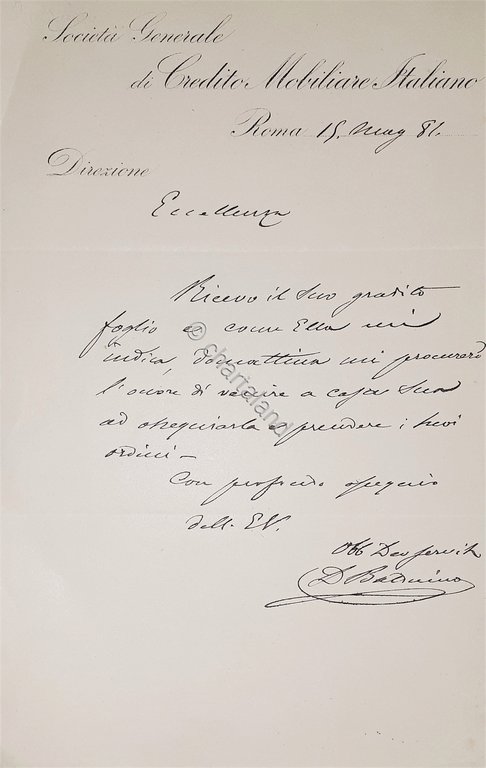 Società Generale
di Credito Mobiliare Italiano
Roma 15. Mag 81.
Direzione
Eccellenza
Ricevo il Suo gradito
foglio e come Ella mi
indica, domattina mi procurerò
l'onore di venire a casa Sua
ad ossequiarla e prendere i Suoi
ordini –
Con profondo ossequio
dell. E.V.
Obb Dev
D Balduino
© chartaland